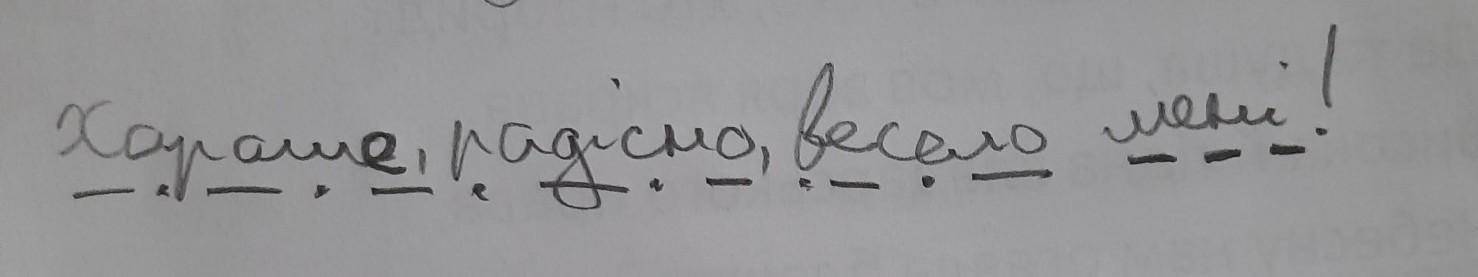 Хороше, радісно, весело мені!